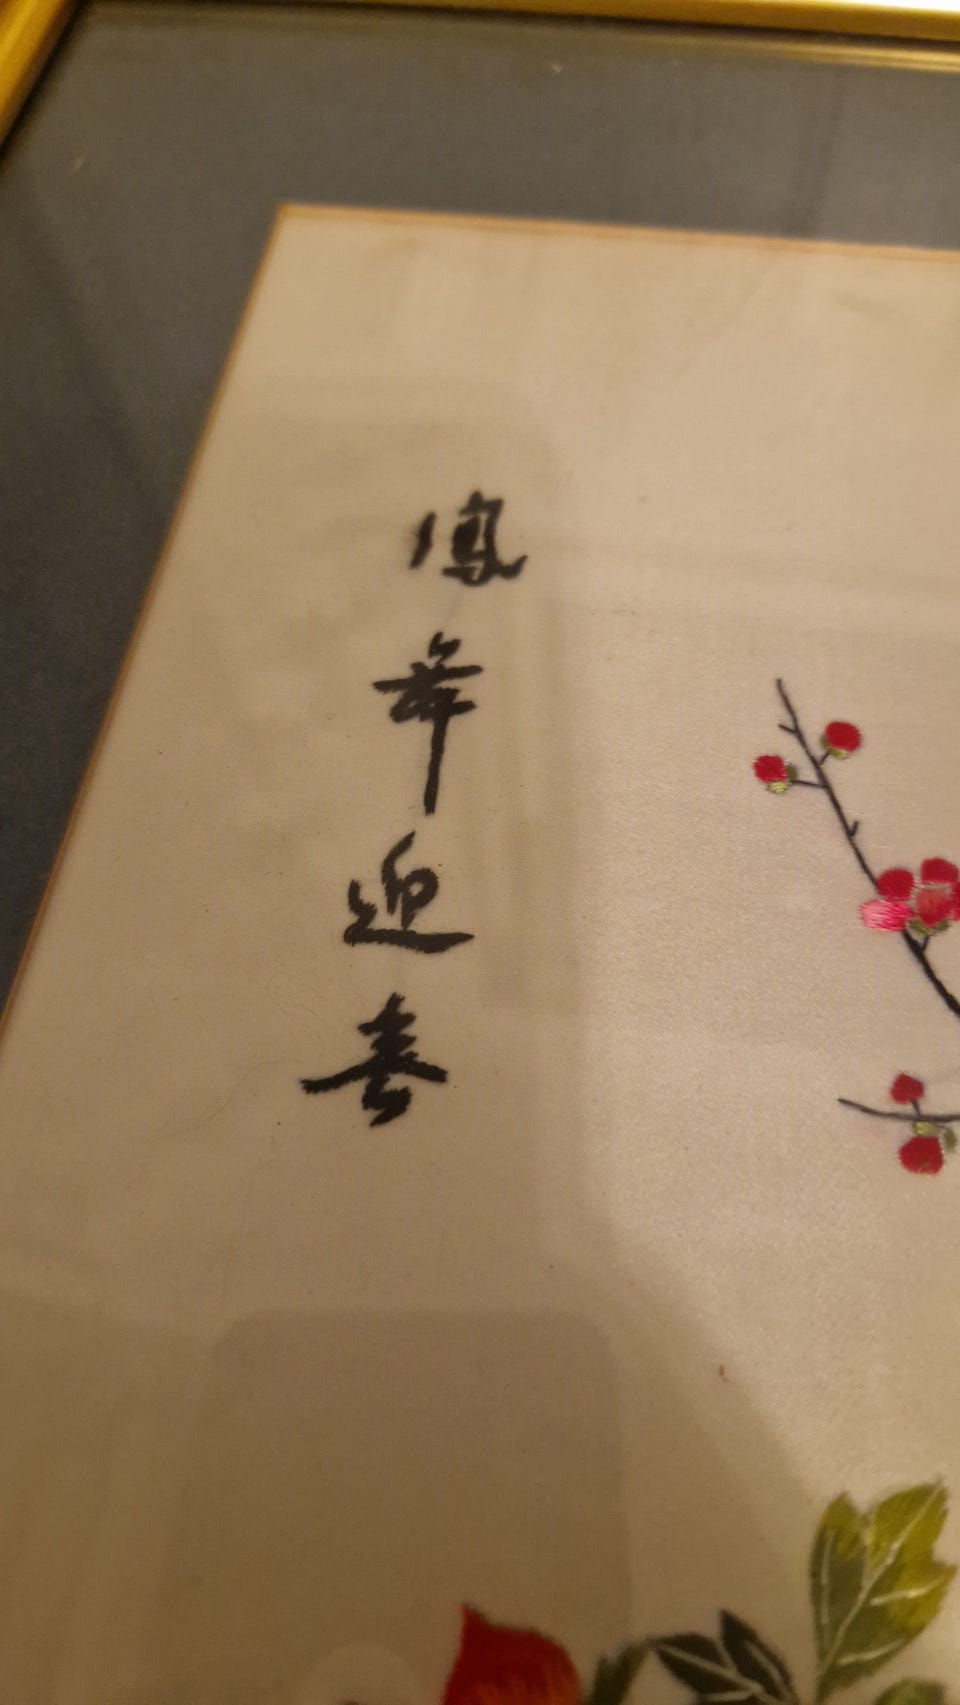 鳳舞迎春